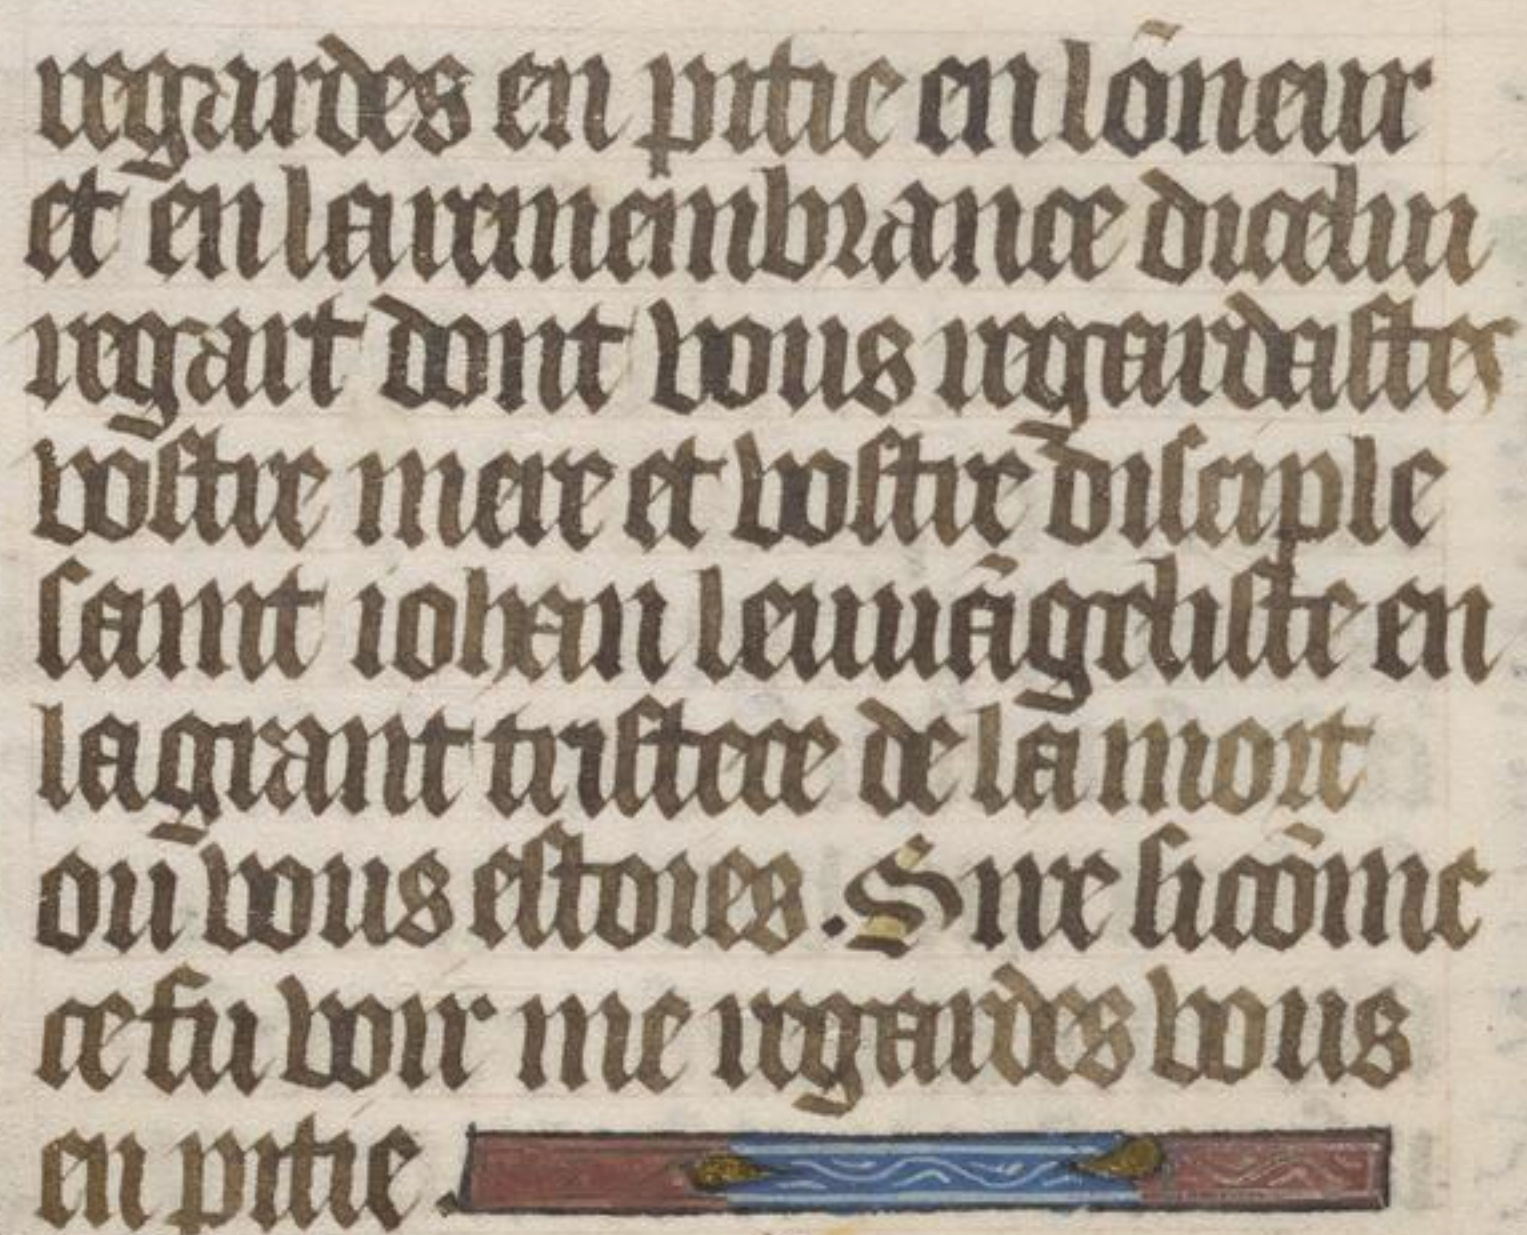 regardes en pitie en lōneur
et en la remenbrance dicelui
regart dont vous regardastes
vostre mere et vostre disciple
saint iohan leuuāgeliste en
la grant tristece de la mort
ou vous estoies. Sire sicōme
ce fu voir me regardes vous
en pitie.